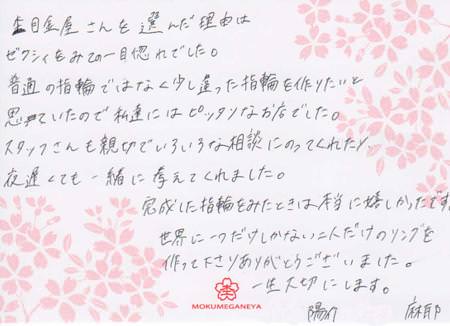 杢目金屋さんを選んだ理由は
ゼクシィをみての一目惚れでした。
普通の指輪ではなく少し違った指輪を作りたいと
思っていたので私達にはピッタリなお店でした。
スタッフさんも親切でいろいろな相談にのってくれたり、
夜遅くても一緒に考えてくれました。
完成した指輪をみたときは本当に嬉しかったです。
世界に一つだけしかない二人だけのリングを
作って下さりありがとうございました。
一生大切にします。
MOKUMEGANEYA
陽介 麻耶